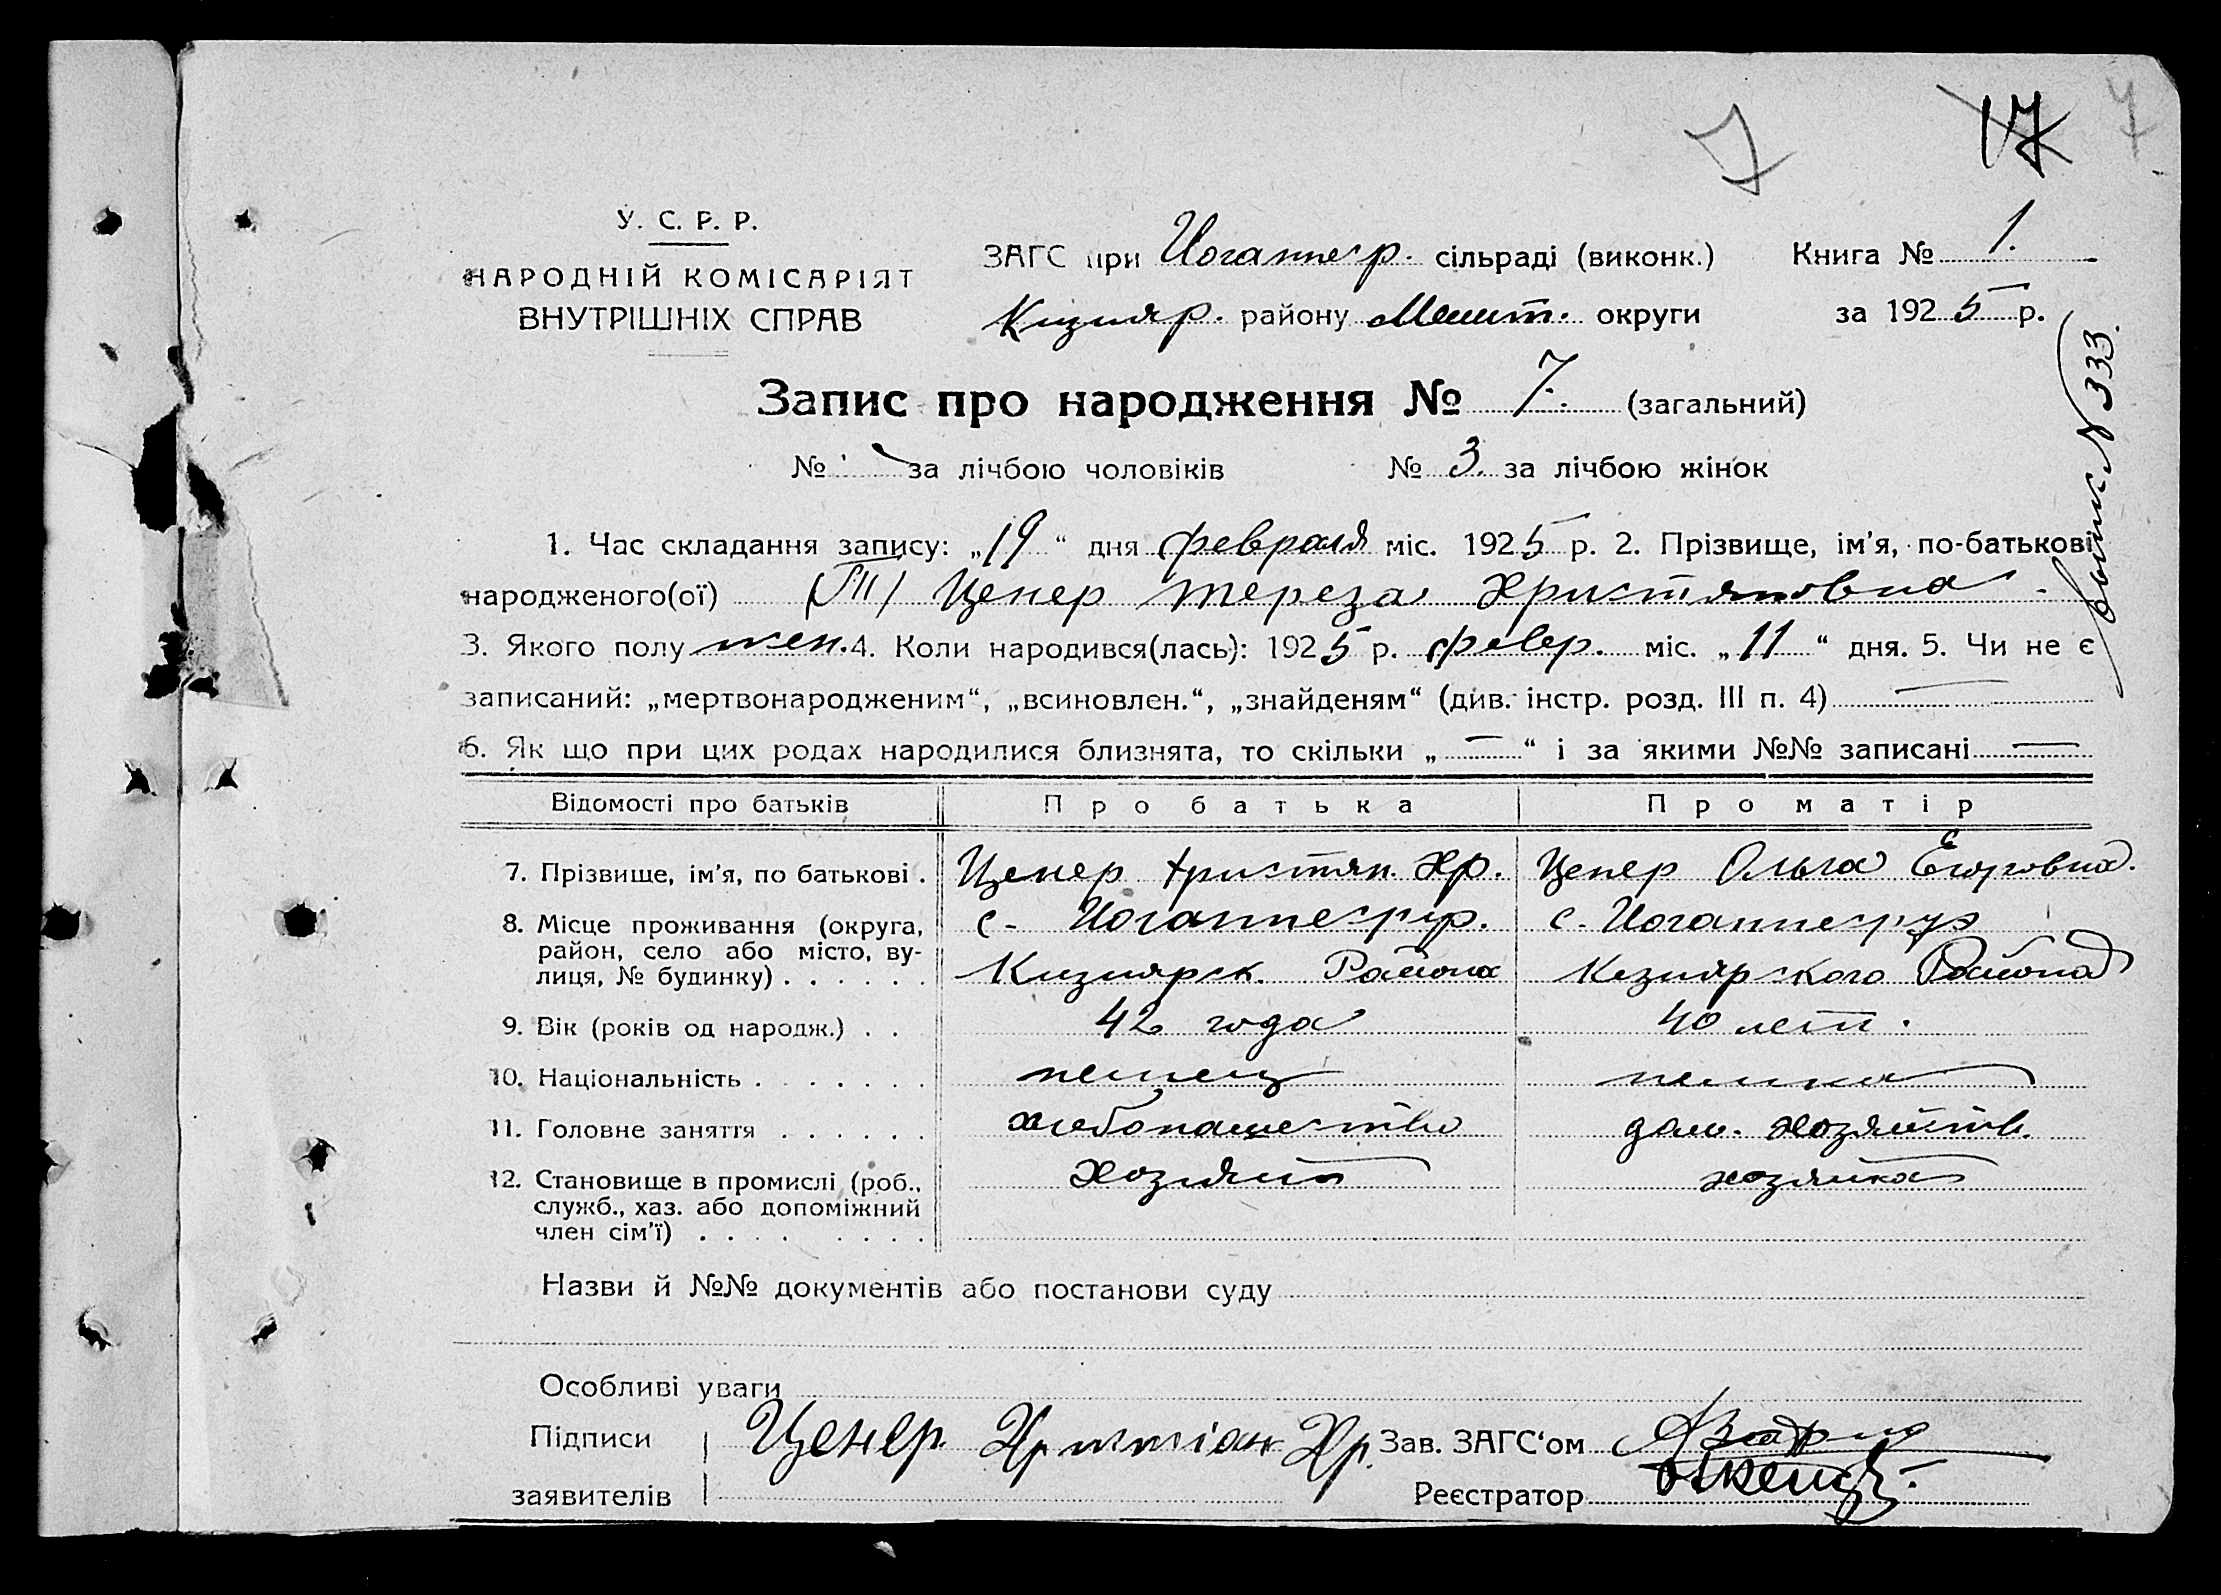 7 17 4
У. С. Р. Р.
НАРОДНІЙ КОМІСАРІЯТ
ВНУТРІШНІХ СПРАВ
ЗАГС при Иоганнеср. сільраді (виконк.) Книга № 1.
Кизияр. району Мелит. округи за 1925 р.
Запис про народження № 7. (загальний)
№ за лічбою чоловіків № 3 за лічбою жінок
1. Час складання запису: „19“ дня февраля міс. 1925 р. 2. Прізвище, ім'я, по-батькові
народженого(ої) Ценер Тереза Християновна
3. Якого полу жен. 4. Коли народився(лась): 1925 р. февр. міс. „11“ дня. 5. Чи не є
записаний: „мертвонародженим“, „всиновлен.“, „знайденям“ (див. інстр. розд. III п. 4) —
6. Як що при цих родах народилися близнята, то скільки „—“ і за якими №№ записані —
N 333.
Відомості про батьків Про батька Про матір
7. Прізвище, ім'я, по батькові . Ценер Християн. Хр. Ценер Ольга Егоровна.
8. Місце проживання (округа, с. Иоганнесрур. с. Иоганнесруэ
район, село або місто, ву-
лиця, № будинку) . . . . . . Кизиярск. Района Кизиярского Района
9. Вік (років од народж.) . . 42 года 40 лет.
10. Національність . . . . . . . немец немка
11. Головне заняття . . . . . . хлебопашество дом. хозяйств.
12. Становище в промислі (роб., хозяин хозяйка
служб., хаз. або допоміжний
член сім'ї) . . . . . . . .
Назви й №№ документів або постанови суду
Особливі уваги
Підписи Ценер Християн Хр. Зав. ЗАГС'ом
заявителів Реєстратор